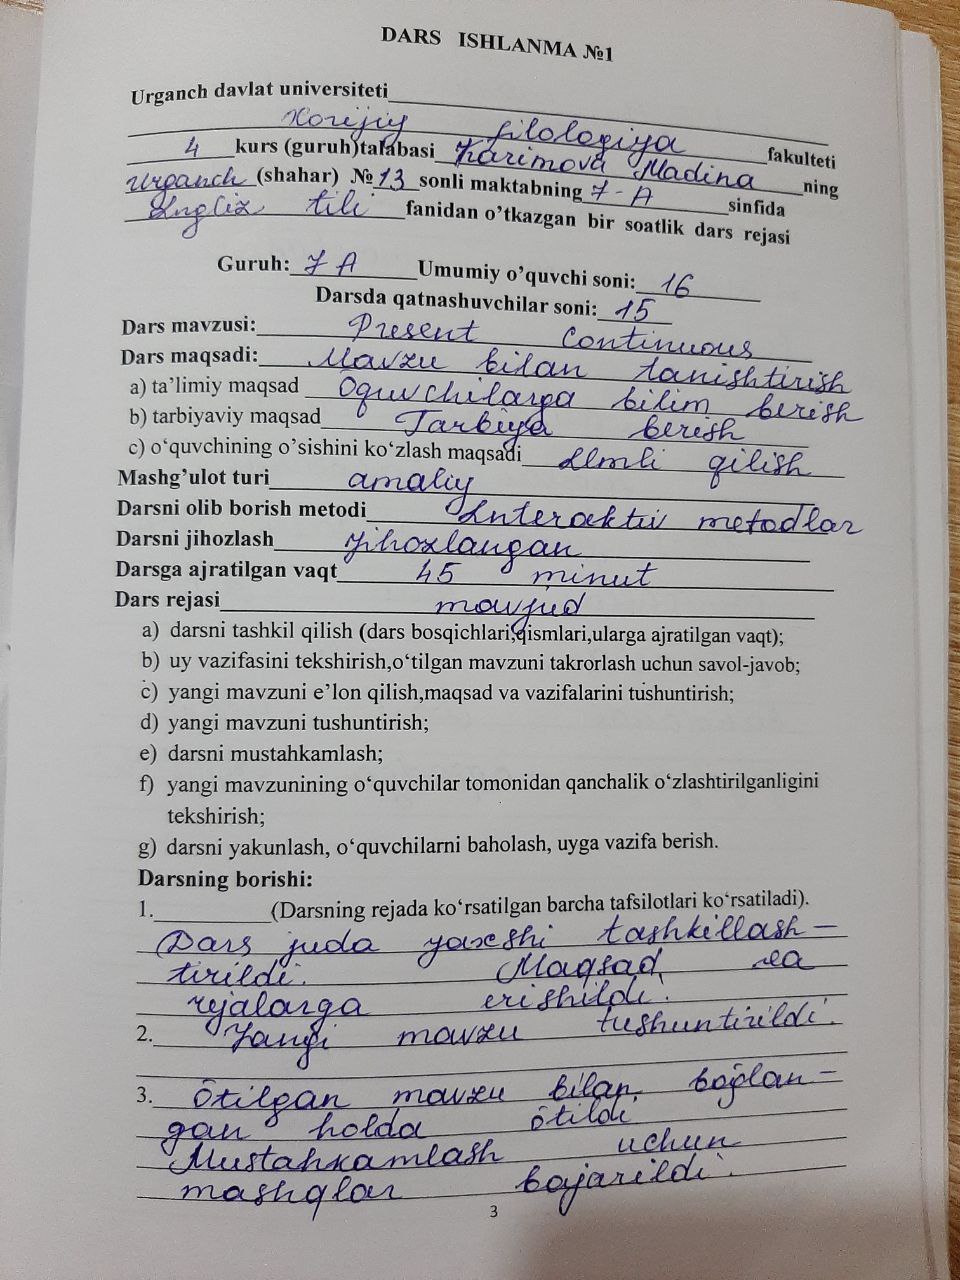 DARS ISHLANMA №1
Urganch davlat universiteti
Xorijiy filologiya fakulteti
4 kurs (guruh)talabasi Karimova Madina ning
Urganch (shahar) №13 sonli maktabning 7-A sinfida
Ingliz tili fanidan o’tkazgan bir soatlik dars rejasi
Guruh: 7 A Umumiy o’quvchi soni: 16
Darsda qatnashuvchilar soni: 15
Dars mavzusi: Present Continuous
Dars maqsadi: Mavzu bilan tanishtirish
a) ta’limiy maqsad Oquvchilarga bilim berish
b) tarbiyaviy maqsad Tarbiya berish
c) o‘quvchining o’sishini ko’zlash maqsadi Ilmli qilish
Mashg’ulot turi amaliy
Darsni olib borish metodi Interaktiv metodlar
Darsni jihozlash Jihozlangan
Darsga ajratilgan vaqt 45 minut
Dars rejasi mavjud
a) darsni tashkil qilish (dars bosqichlari,qismlari,ularga ajratilgan vaqt);
b) uy vazifasini tekshirish,o‘tilgan mavzuni takrorlash uchun savol-javob;
c) yangi mavzuni e’lon qilish,maqsad va vazifalarini tushuntirish;
d) yangi mavzuni tushuntirish;
e) darsni mustahkamlash;
f) yangi mavzunining o‘quvchilar tomonidan qanchalik o‘zlashtirilganligini
tekshirish;
g) darsni yakunlash, o‘quvchilarni baholash, uyga vazifa berish.
Darsning borishi:
1.__________ (Darsning rejada ko‘rsatilgan barcha tafsilotlari ko‘rsatiladi).
Dars juda yaxshi tashkillash-
tirildi. Maqsad va
rejalarga erishildi.
2. Yangi mavzu tushuntirildi.
3. Ôtilgan mavzu bilan boĝlan-
gan holda ôtildi
Mustahkamlash uchun
mashqlar bajarildi.
3